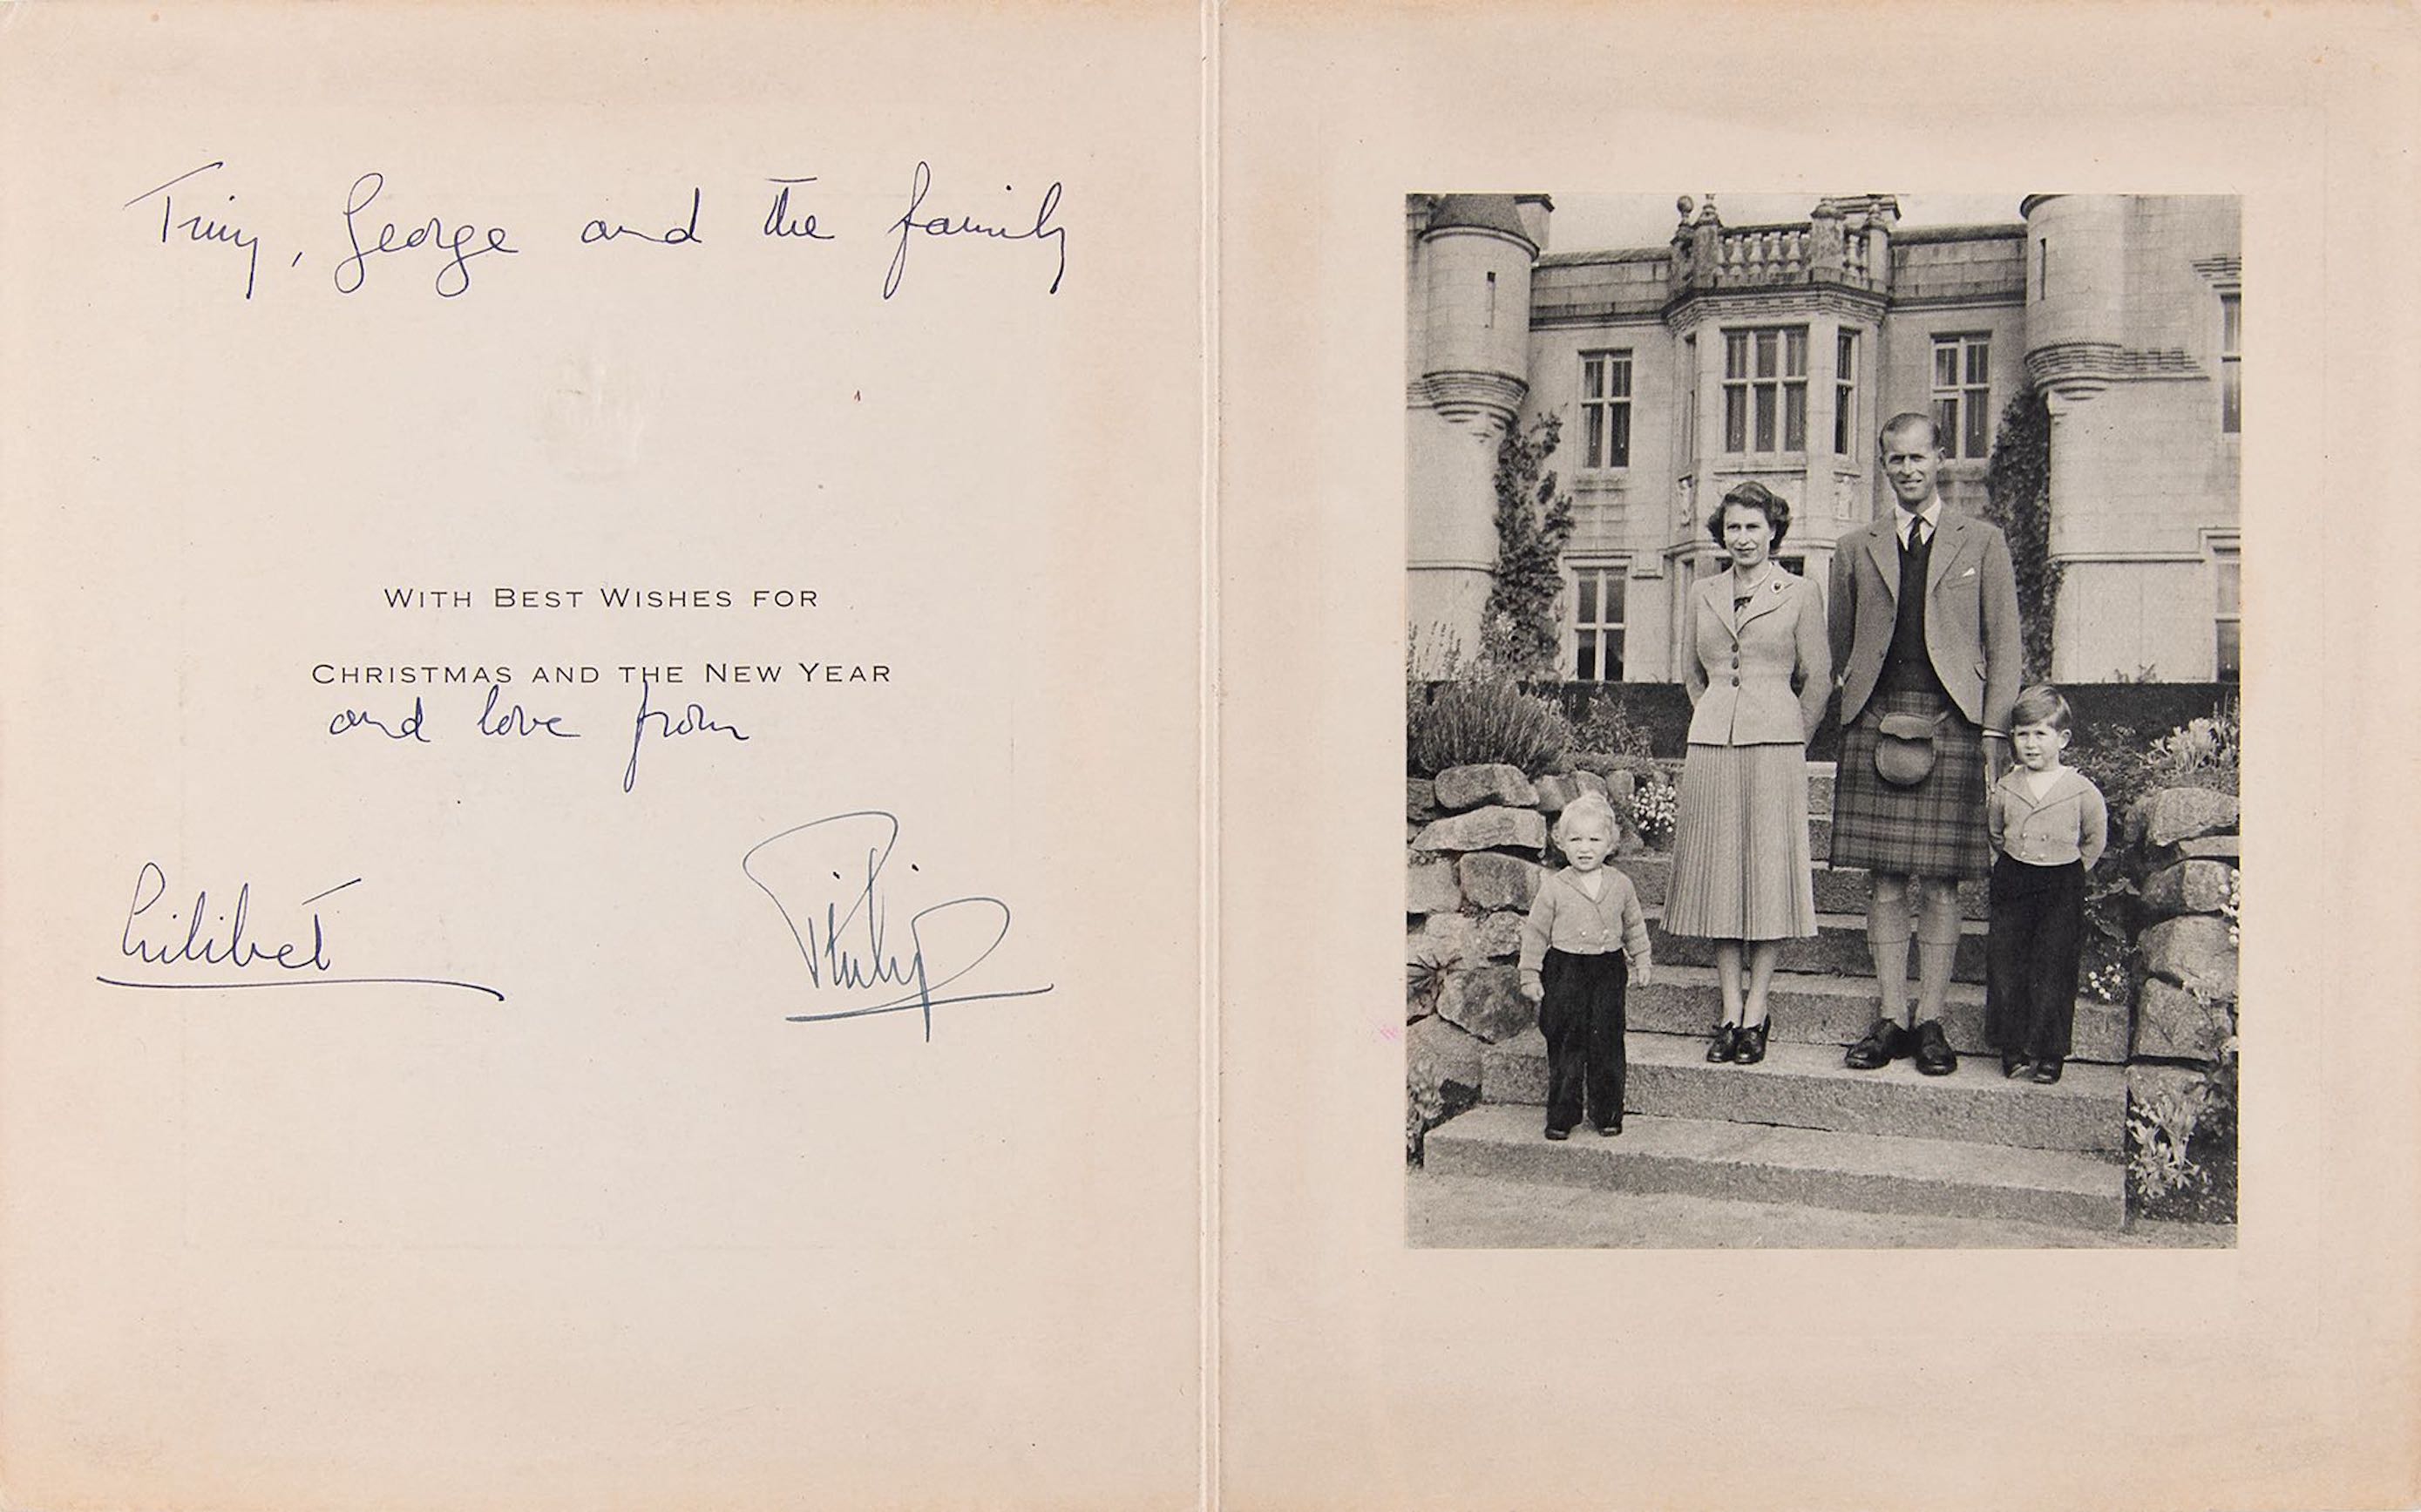 Tiny, George and the family
WITH BEST WISHES FOR
CHRISTMAS AND THE NEW YEAR
and love from
Lilibet
Philip